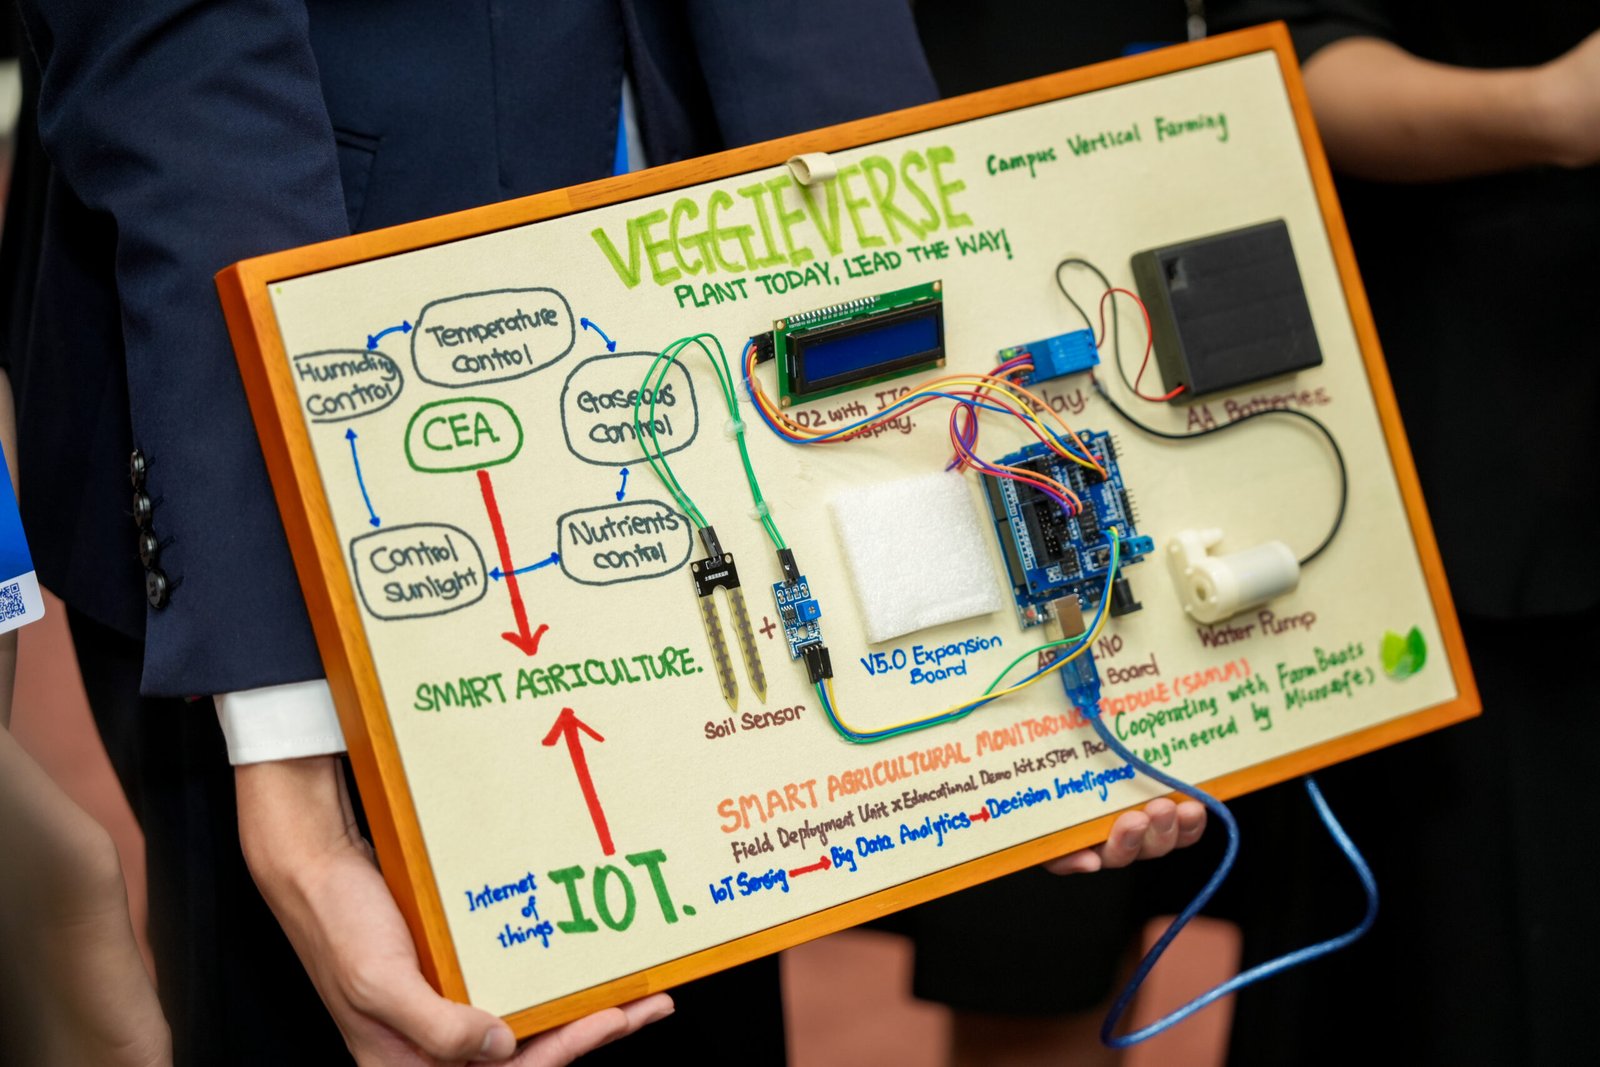 VEGGIEVERSE
PLANT TODAY, LEAD THE WAY!
Campus Vertical Farming
Temperature
control
Humidity
Control
CEA
Gaseous
control
Nutrients
control
Control
sunlight
SMART AGRICULTURE.
Internet
of
things
IOT.
with
Display.
Relay.
AA Batteries
V5.0 Expansion
Board
Board
Water Pump
+
Soil Sensor
SMART AGRICULTURAL MONITORING MODULE (SAMM)
Field Deployment Unit x Educational Demo IoT x STEM
IoT Sensing → Big Data Analytics → Decision Intelligence
Cooperating with FarmBeats
engineered by Microsoft)